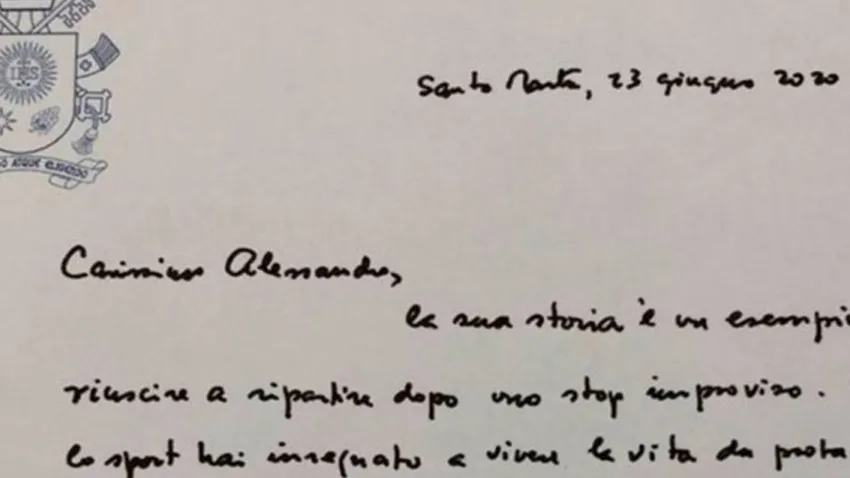 IHS
O ATQUE ELIGENDO
Santa Marta, 23 giugno 2020
Carissimo Alessandro,
la sua storia è un esempio
riuscire a ripartire dopo uno stop improviso.
lo sport hai insegnato a vivere la vita da prota